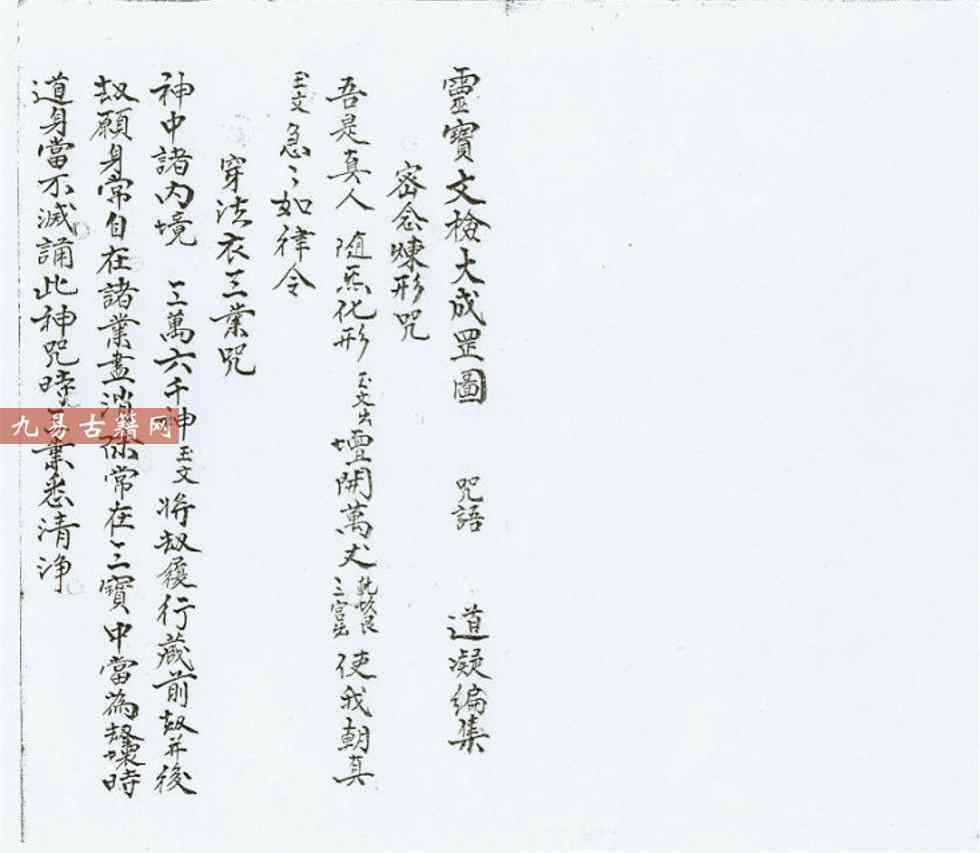 靈寶文檢大成罡圖 咒語 道凝編集
密念煉形咒
吾是真人 隨炁化形 玉文出 壇開萬丈 乾坎艮三宮出 使我朝真
玉文 急〻如律令
穿法衣三業咒
神中諸內境 三萬六千神 玉文 將劫履行藏前劫并後
劫願身常自在諸業盡消除常在三寶中當為劫壞時
道身當不滅誦此神咒時三業悉清淨
九易古籍网